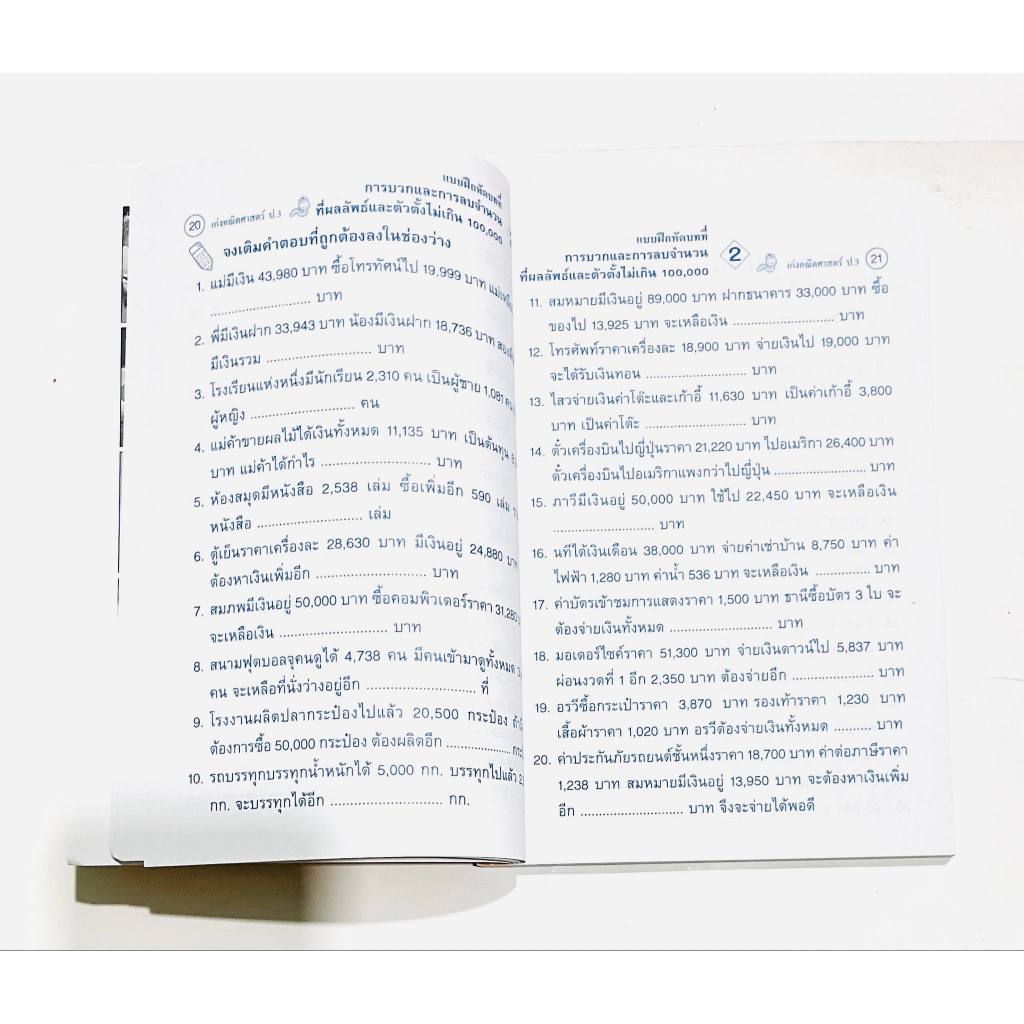 แบบฝึกหัดบทที่
การบวกและการลบจำนวน
20 เก่งคณิตศาสตร์ ป.3 ที่ผลลัพธ์และตัวตั้งไม่เกิน 100,000
จงเติมคำตอบที่ถูกต้องลงในช่องว่าง
1. แม่มีเงิน 43,980 บาท ซื้อโทรทัศน์ไป 19,999 บาท
............................ บาท
2. พี่มีเงินฝาก 33,943 บาท น้องมีเงินฝาก 18,736 บาท
มีเงินรวม ............................ บาท
3. โรงเรียนแห่งหนึ่งมีนักเรียน 2,310 คน เป็นผู้ชาย 1,081
ผู้หญิง ............................ คน
4. แม่ค้าขายผลไม้ได้เงินทั้งหมด 11,135 บาท เป็นต้นทุน
บาท แม่ค้าได้กำไร ............................ บาท
5. ห้องสมุดมีหนังสือ 2,538 เล่ม ซื้อเพิ่มอีก 590 เล่ม
หนังสือ ............................ เล่ม
6. ตู้เย็นราคาเครื่องละ 28,630 บาท มีเงินอยู่ 24,880
ต้องหาเงินเพิ่มอีก ............................ บาท
7. สมภพมีเงินอยู่ 50,000 บาท ซื้อคอมพิวเตอร์ราคา 31,280
จะเหลือเงิน ............................ บาท
8. สนามฟุตบอลจุคนดูได้ 4,738 คน มีคนเข้ามาดูทั้งหมด
คน จะเหลือที่นั่งว่างอยู่อีก ............................ ที่
9. โรงงานผลิตปลากระป๋องไปแล้ว 20,500 กระป๋อง
ต้องการซื้อ 50,000 กระป๋อง ต้องผลิตอีก .................
10. รถบรรทุกบรรทุกน้ำหนักได้ 5,000 กก. บรรทุกไปแล้ว
กก. จะบรรทุกได้อีก ............................ กก.
แบบฝึกหัดบทที่
การบวกและการลบจำนวน 2
ที่ผลลัพธ์และตัวตั้งไม่เกิน 100,000 เก่งคณิตศาสตร์ ป.3 21
11. สมหมายมีเงินอยู่ 89,000 บาท ฝากธนาคาร 33,000 บาท ซื้อ
ของไป 13,925 บาท จะเหลือเงิน ............................ บาท
12. โทรศัพท์ราคาเครื่องละ 18,900 บาท จ่ายเงินไป 19,000 บาท
จะได้รับเงินทอน ............................ บาท
13. ไสวจ่ายเงินค่าโต๊ะและเก้าอี้ 11,630 บาท เป็นค่าเก้าอี้ 3,800
บาท เป็นค่าโต๊ะ ............................ บาท
14. ตั๋วเครื่องบินไปญี่ปุ่นราคา 21,220 บาท ไปอเมริกา 26,400 บาท
ตั๋วเครื่องบินไปอเมริกาแพงกว่าไปญี่ปุ่น ........................ บาท
15. ภาวีมีเงินอยู่ 50,000 บาท ใช้ไป 22,450 บาท จะเหลือเงิน
............................ บาท
16. นทีได้เงินเดือน 38,000 บาท จ่ายค่าเช่าบ้าน 8,750 บาท ค่า
ไฟฟ้า 1,280 บาท ค่าน้ำ 536 บาท จะเหลือเงิน ............... บาท
17. ค่าบัตรเข้าชมการแสดงราคา 1,500 บาท ธานีซื้อบัตร 3 ใบ จะ
ต้องจ่ายเงินทั้งหมด ............................ บาท
18. มอเตอร์ไซค์ราคา 51,300 บาท จ่ายเงินดาวน์ไป 5,837 บาท
ผ่อนงวดที่ 1 อีก 2,350 บาท ต้องจ่ายอีก ...................... บาท
19. อรวีซื้อกระเป๋าราคา 3,870 บาท รองเท้าราคา 1,230 บาท
เสื้อผ้าราคา 1,020 บาท อรวีต้องจ่ายเงินทั้งหมด .......... บาท
20. ค่าประกันภัยรถยนต์ชั้นหนึ่งราคา 18,700 บาท ค่าต่อภาษีราคา
1,238 บาท สมหมายมีเงินอยู่ 13,950 บาท จะต้องหาเงินเพิ่ม
อีก ............................ บาท จึงจะจ่ายได้พอดี